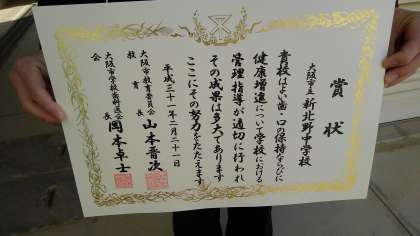 賞状
大阪市立新北野中学校
貴校はよい歯・口の保持ならびに
健康増進について学校における
管理指導が適切に行われ
その成果は多大であります
ここにその努力をたたえます
平成三十一年二月二十一日
大阪市教育委員会
教育長 山本晋次
大阪市学校歯科医会
会長 岡本卓士